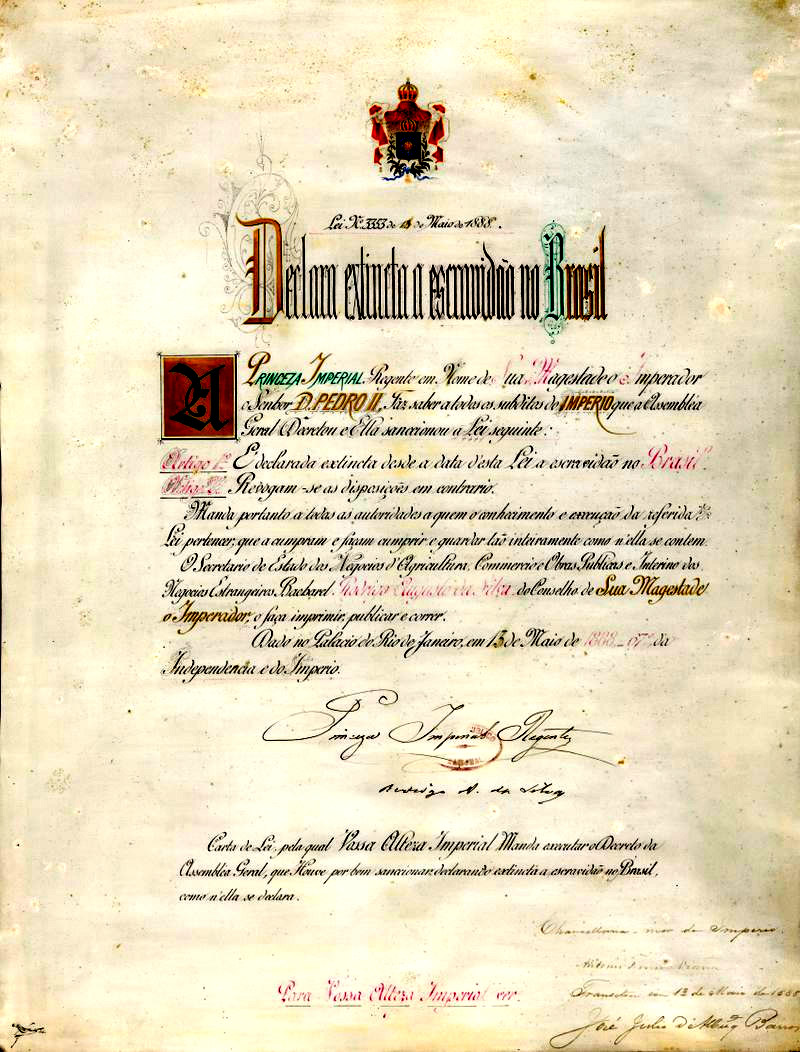 Lei Nº 3353 de 13 de Maio de 1888.
Declara extincta a escravidão no Brasil
A PRINCEZA IMPERIAL Regente em Nome de Sua Magestade o Imperador
o Senhor D. PEDRO II, Faz saber a todos os subditos do IMPERIO que a Assembléa
Geral Decretou e Ella sanccionou a Lei seguinte:
Artigo 1º É declarada extincta desde a data d'esta Lei a escravidão no Brasil.
Artigo 2º Revogam-se as disposições em contrario.
Manda portanto a todas as autoridades a quem o conhecimento e execução da referida
Lei pertencer, que a cumpram e façam cumprir e guardar tão inteiramente como n'ella se contem.
O Secretario de Estado dos Negocios d'Agricultura, Commercio e Obras Publicas e Interino dos
Negocios Estrangeiros Bacharel Rodrigo Augusto da Silva do Conselho de Sua Magestade
o Imperador, o faça imprimir, publicar e correr.
Dado no Palacio do Rio de Janeiro, em 13 de Maio de 1888 – 67º da
Independencia e do Imperio.
Princeza Imperial Regente
Rodrigo A. da Silva
Carta de Lei, pela qual Vossa Alteza Imperial Manda executar o Decreto da
Assembléa Geral, que Houve por bem sanccionar, declarando extincta a escravidão no Brasil,
como n'ella se declara.
Chancellaria-mor do Imperio.
Para Vossa Alteza Imperial ver.
Transitou em 13 de Maio de 1888
José Julio d'Albuqº Barros